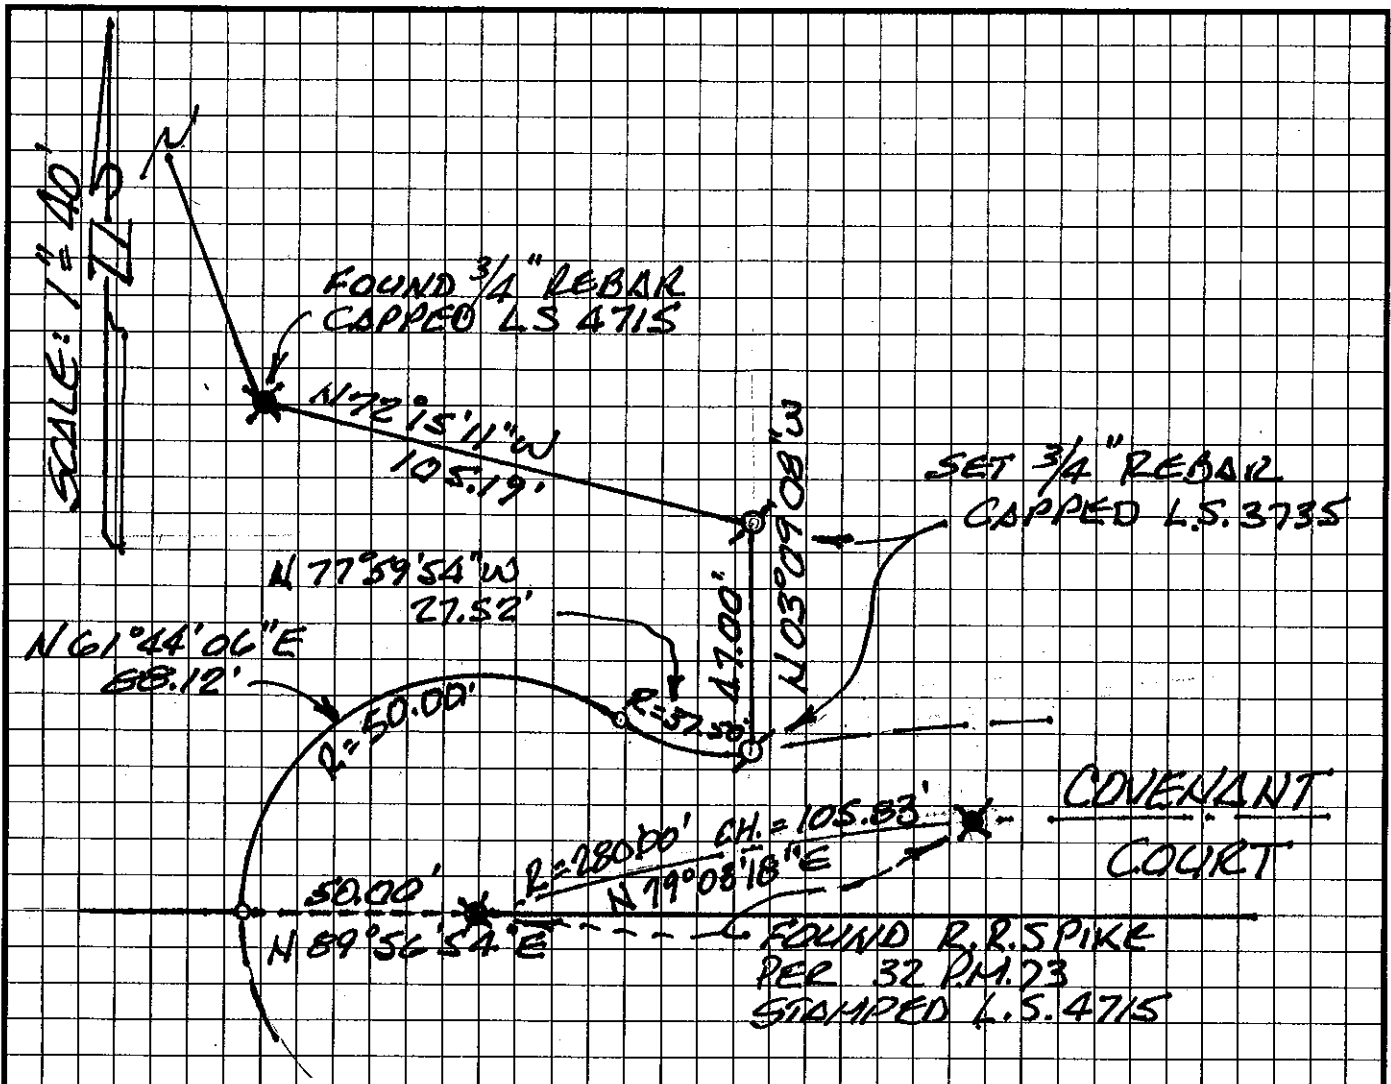 SCALE: 1" = 40'
N
FOUND 3/4" REBAR
CAPPED L.S 4715
N 72°15'11" W
105.19'
SET 3/4" REBAR
CAPPED L.S. 3735
N 03°09'08" W
47.00'
N 77°59'54" W
27.52'
N 61°44'06" E
88.12'
R=50.00'
R=37.50'
COVENANT
COURT
R=280.00' CH.= 105.83'
N 79°08'18" E
50.00'
N 89°56'54" E
FOUND R.R.SPIKE
PER 32 P.M. 73
STAMPED L.S. 4715